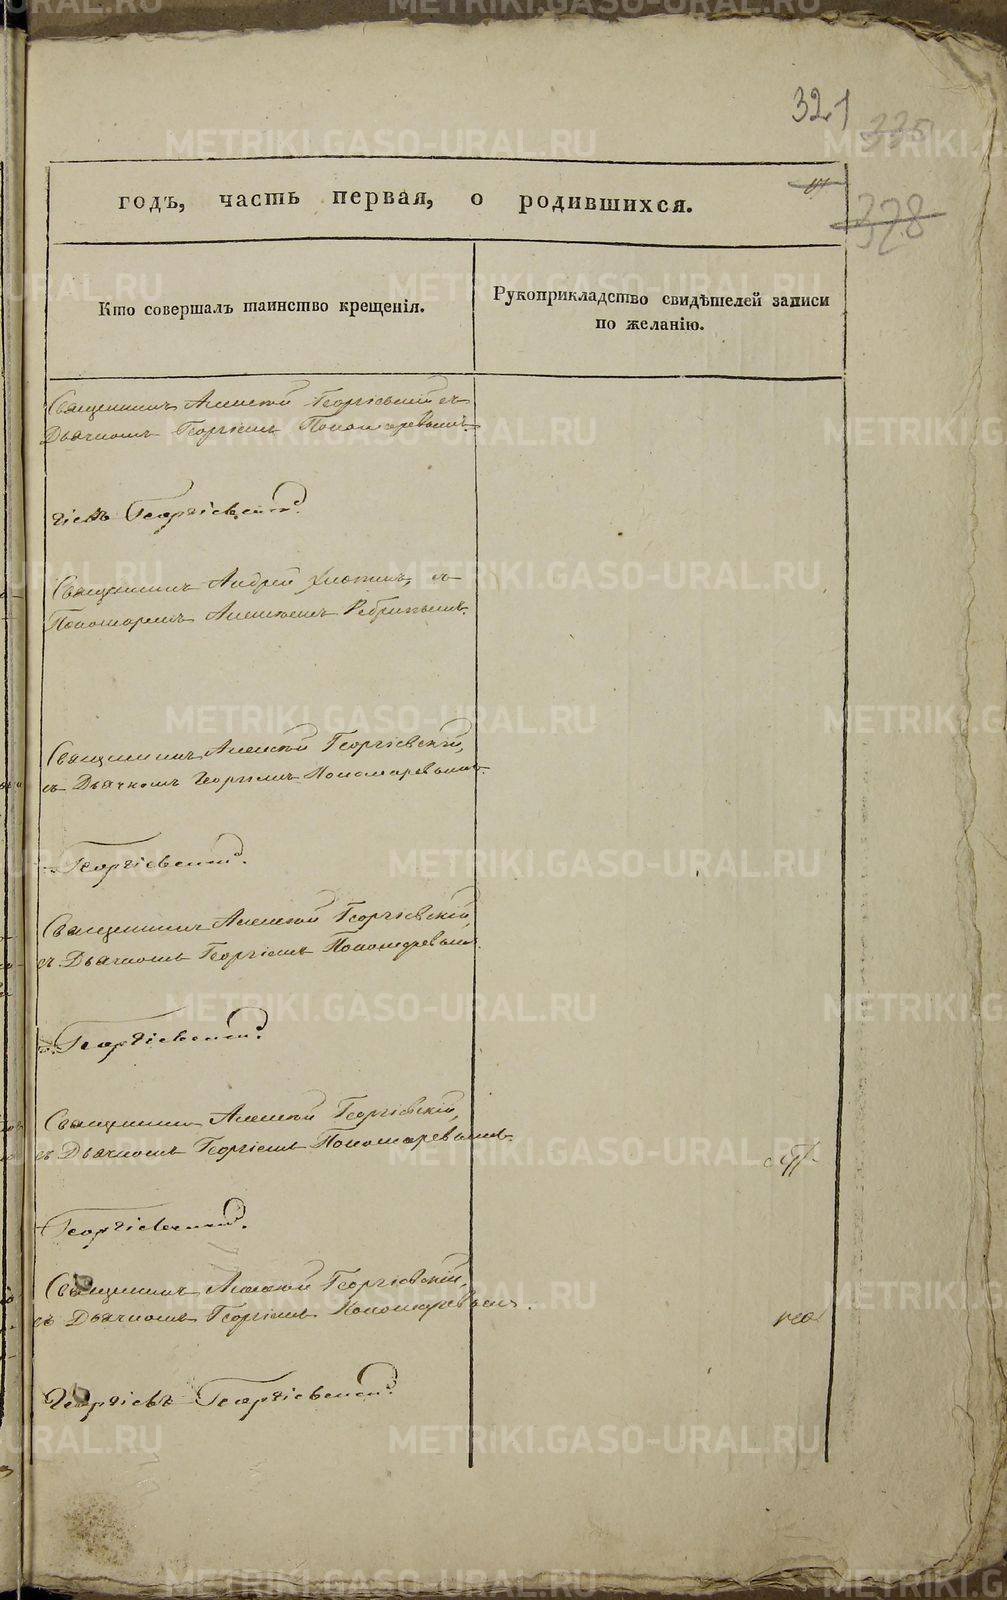 321
335
328
годъ, часть первая, о родившихся.
Кто совершалъ таинство крещенія.
Рукоприкладство свидѣтелей записи
по желанію.
Священникъ Алексѣй Георгіевскій съ
Дьячкомъ Георгіемъ Пономаревымъ.
Георгіевскій.
Священникъ Андрей Хлопинъ, съ
Пономаремъ
Священникъ Алексѣй Георгіевскій,
съ Дьячкомъ Георгіемъ Пономаревымъ.
Георгіевскій.
Священникъ Алексѣй Георгіевскій,
съ Дьячкомъ Георгіемъ Пономаревымъ.
Георгіевскій.
Священникъ Алексѣй Георгіевскій,
съ Дьячкомъ Георгіемъ Пономаревымъ.
Георгіевскій.
Священникъ Алексѣй Георгіевскій,
съ Дьячкомъ Георгіемъ Пономаревымъ.
Георгіевскій.
METRIKI.GASO-URAL.RU